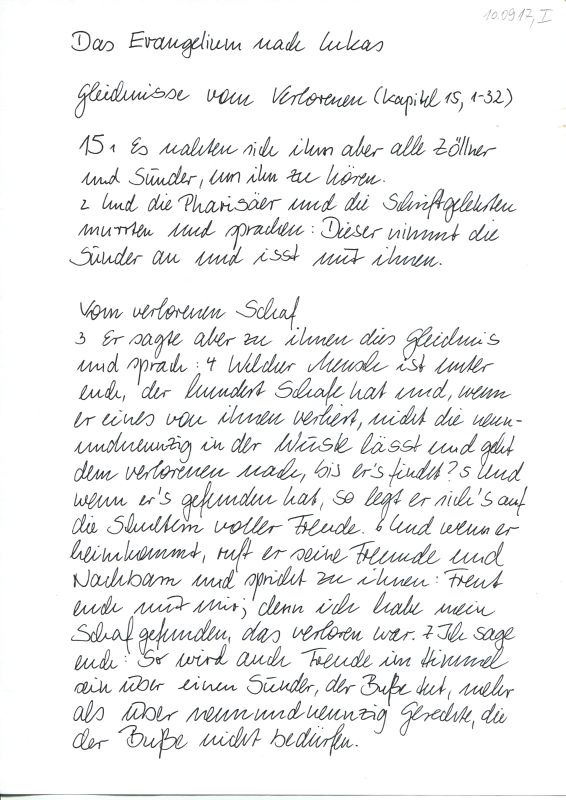 10.09.17, I
Das Evangelium nach Lukas
Gleichnisse vom Verlorenen (Kapitel 15, 1-32)
15 1 Es nahten sich ihm aber alle Zöllner
und Sünder, um ihn zu hören.
2 Und die Pharisäer und die Schriftgelehrten
murrten und sprachen: Dieser nimmt die
Sünder an und isst mit ihnen.
Vom verlorenen Schaf
3 Er sagte aber zu ihnen dies Gleichnis
und sprach: 4 Welcher Mensch ist unter
euch, der hundert Schafe hat und, wenn
er eines von ihnen verliert, nicht die neun-
undneunzig in der Wüste lässt und geht
dem verlorenen nach, bis er's findet? 5 Und
wenn er's gefunden hat, so legt er sich's auf
die Schultern voller Freude. 6 Und wenn er
heimkommt, ruft er seine Freunde und
Nachbarn und spricht zu ihnen: Freut
euch mit mir; denn ich habe mein
Schaf gefunden, das verloren war. 7 Ich sage
euch: So wird auch Freude im Himmel
sein über einen Sünder, der Buße tut, mehr
als über neunundneunzig Gerechte, die
der Buße nicht bedürfen.